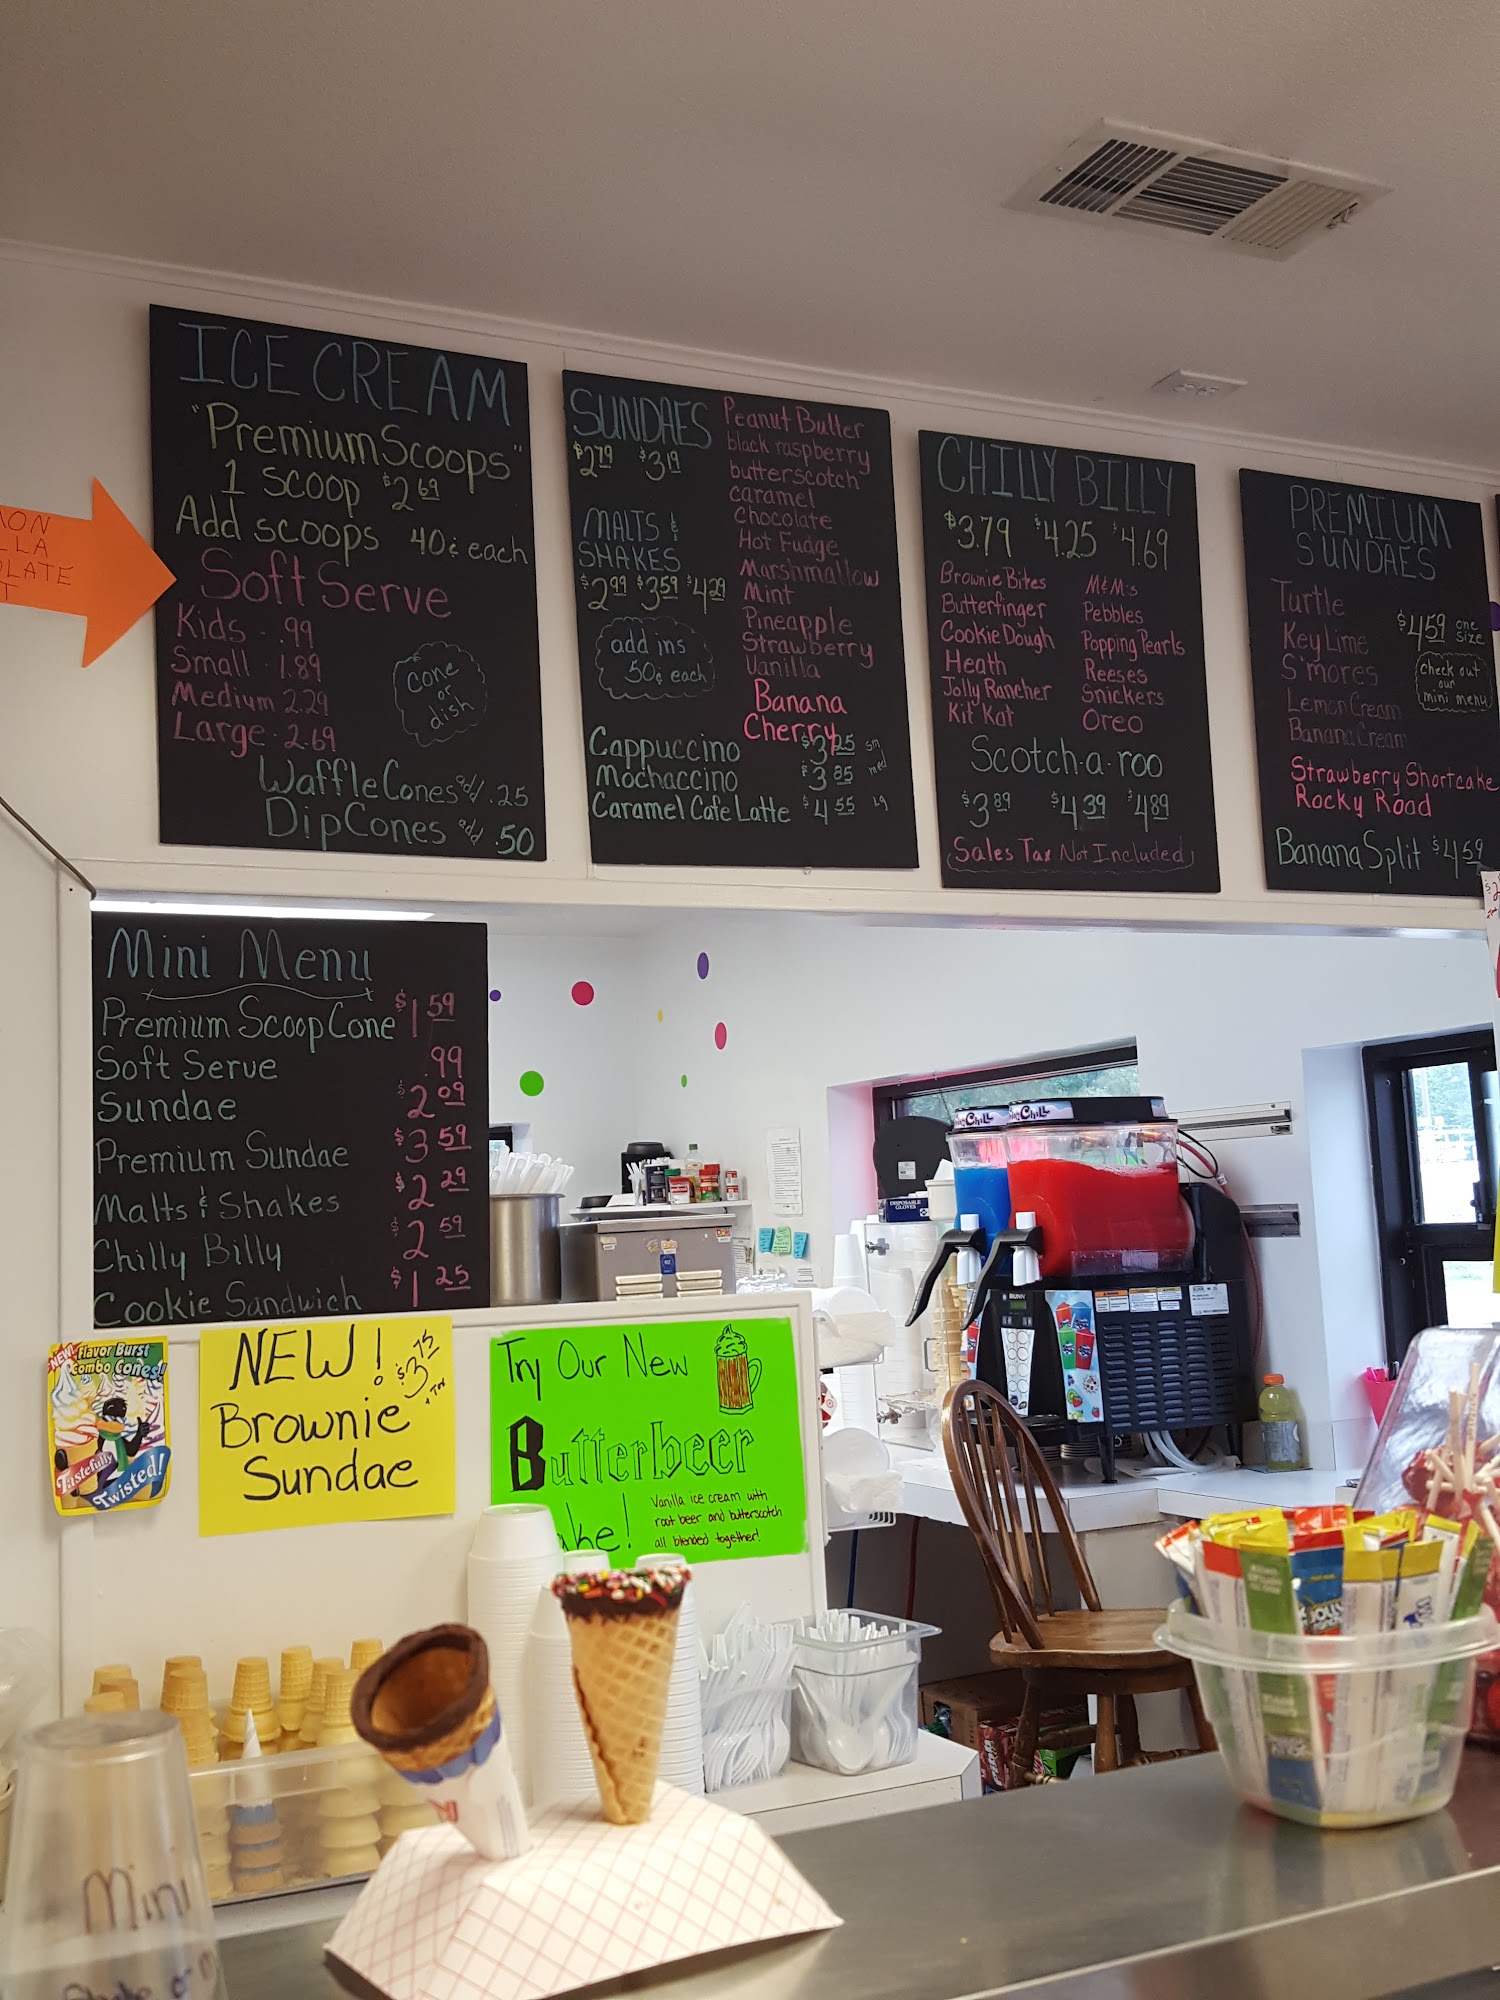 ICE CREAM
"Premium Scoops"
1 scoop $2.69
Add scoops 40¢ each
Soft Serve
Kids - .99
Small - 1.89
Medium 2.29
Large - 2.69
cone
or
dish
Waffle Cones add .25
Dip Cones add .50
SUNDAES
$2.79 $3.19
MALTS &
SHAKES
$2.99 $3.59 $4.29
add ins
50¢ each
Peanut Butter
black raspberry
butterscotch
caramel
Chocolate
Hot Fudge
Marshmallow
Mint
Pineapple
Strawberry
Vanilla
Banana
Cherry
Cappuccino $3.25 sm
Mochaccino $3.85 med
Caramel Cafe Latte $4.55 Lg
CHILLY BILLY
$3.79 $4.25 $4.69
Brownie Bites
Butterfinger
Cookie Dough
Heath
Jolly Rancher
Kit Kat
M&M's
Pebbles
Popping Pearls
Reeses
Snickers
Oreo
Scotch-a-roo
$3.89 $4.39 $4.89
(Sales Tax Not Included)
PREMIUM
SUNDAES
Turtle
Key Lime
S'mores
Lemon Cream
Banana Cream
$4.59 one
size
Check out
our
mini menu
Strawberry Shortcake
Rocky Road
Banana Split $4.59
Mini Menu
Premium Scoop Cone $1.59
Soft Serve .99
Sundae $2.09
Premium Sundae $3.59
Malts & Shakes $2.29
Chilly Billy $2.59
Cookie Sandwich $1.25
NEW! Flavor Burst
Combo Cones!
Tastefully
Twisted!
NEW! $3.75
+ Tax
Brownie
Sundae
Try Our New
Butterbeer
ake!
Vanilla ice cream with
root beer and butterscotch
all blended together!
CHILL
DISPOSABLE
GLOVES
BUNN
Mini
Shake or